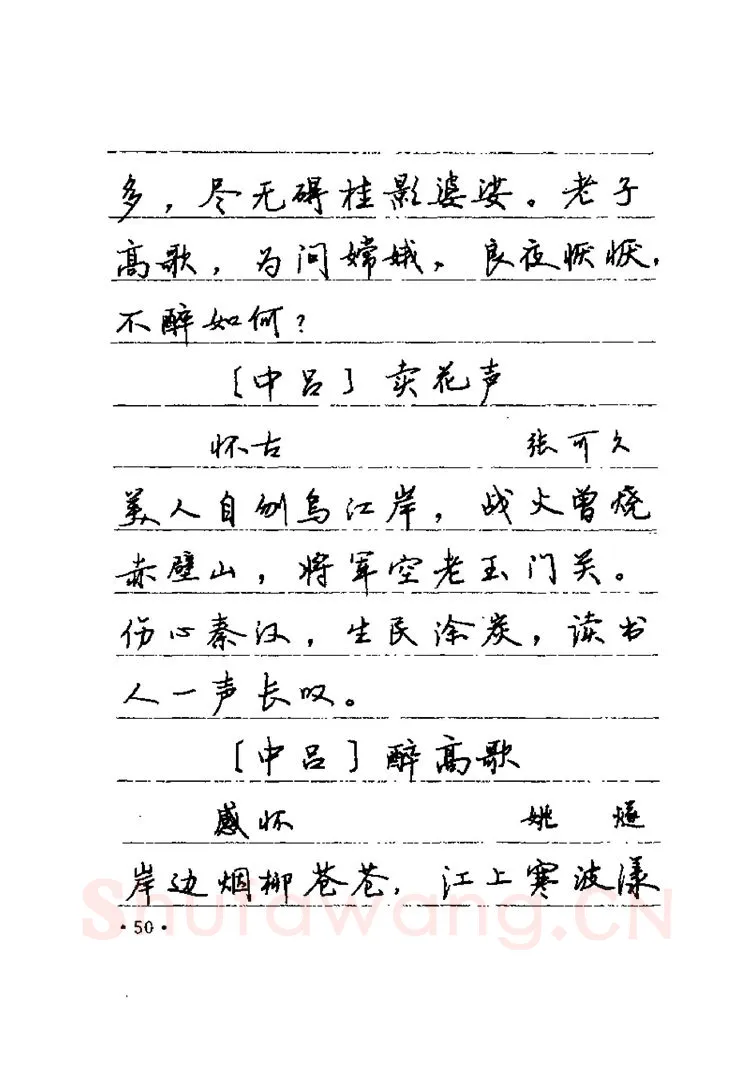 多，尽无碍桂影婆娑。老子
高歌，为问嫦娥，良夜恹恹，
不醉如何？
［中吕］卖花声
怀古 张可久
美人自刎乌江岸，战火曾烧
赤壁山，将军空老玉门关。
伤心秦汉，生民涂炭，读书
人一声长叹。
［中吕］醉高歌
感怀 姚燧
岸边烟柳苍苍，江上寒波漾
Shufawang.CN
·50·